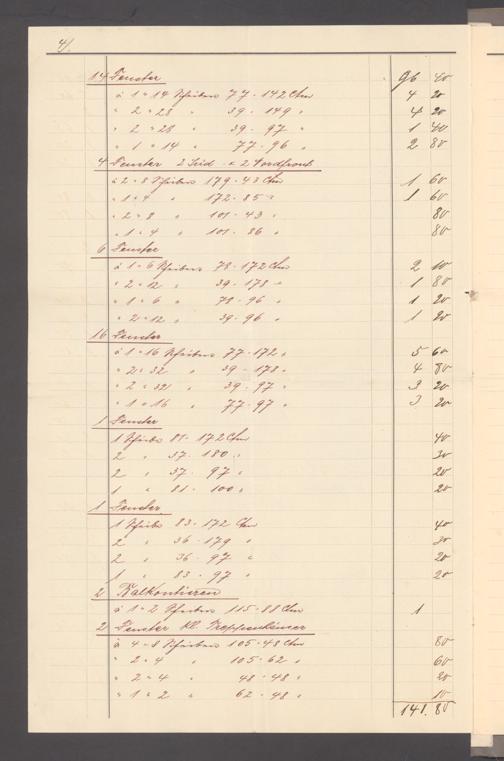 4/.
14 Fenster 96 40
à 1 = 14 Scheiben 77 · 142 Ctm 4 20
" 2 = 28 " 39 · 149 " 4 20
" 2 = 28 " 39 · 97 " 1 40
" 1 = 14 " 77 · 96 " 2 80
4 Fenster 2 Süd- & 2 Nordfront
à 2 = 8 Scheiben 179 · 43 Ctm 1 60
" 1 = 4 " 172 · 85 " 1 60
" 2 = 8 " 101 · 43 " 80
" 1 = 4 " 101 · 86 " 80
6 Fenster
à 1 = 6 Scheiben 78 · 172 Ctm 2 10
" 2 = 12 " 39 · 178 " 1 80
" 1 = 6 " 78 · 96 " 1 20
" 2 = 12 " 39 · 96 " 1 20
16 Fenster
à 1 = 16 Scheiben 77 · 172 " 5 60
" 2 = 32 " 39 · 178 " 4 80
" 2 = 32 " 39 · 97 " 3 20
" 1 = 16 " 77 · 97 " 3 20
1 Fenster
1 Scheibe 81 · 172 Ctm 40
2 " 37 · 180 " 30
2 " 37 · 97 " 20
1 " 81 · 100 " 20
1 Fenster
1 Scheibe 83 · 172 Ctm 40
2 " 36 · 179 " 30
2 " 36 · 97 " 20
1 " 83 · 97 " 20
2 Balkontüren
à 1 = 2 Scheiben 115 · 88 Ctm 1
2 Fenster kl. Treppenhäuser
à 4 = 8 Scheiben 105 · 48 Ctm 80
" 2 = 4 " 105 · 62 " 60
" 2 = 4 " 48 · 48 " 20
" 1 = 2 " 62 · 48 " 10
148. 80